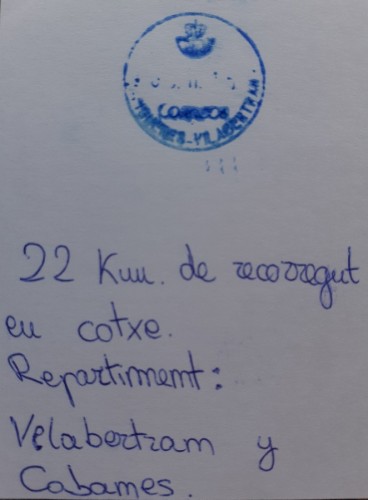 CORREOS
VILABERTRAN
22 Km. de recorregut
en cotxe.
Repartiment:
Velabertram y
Cabames.